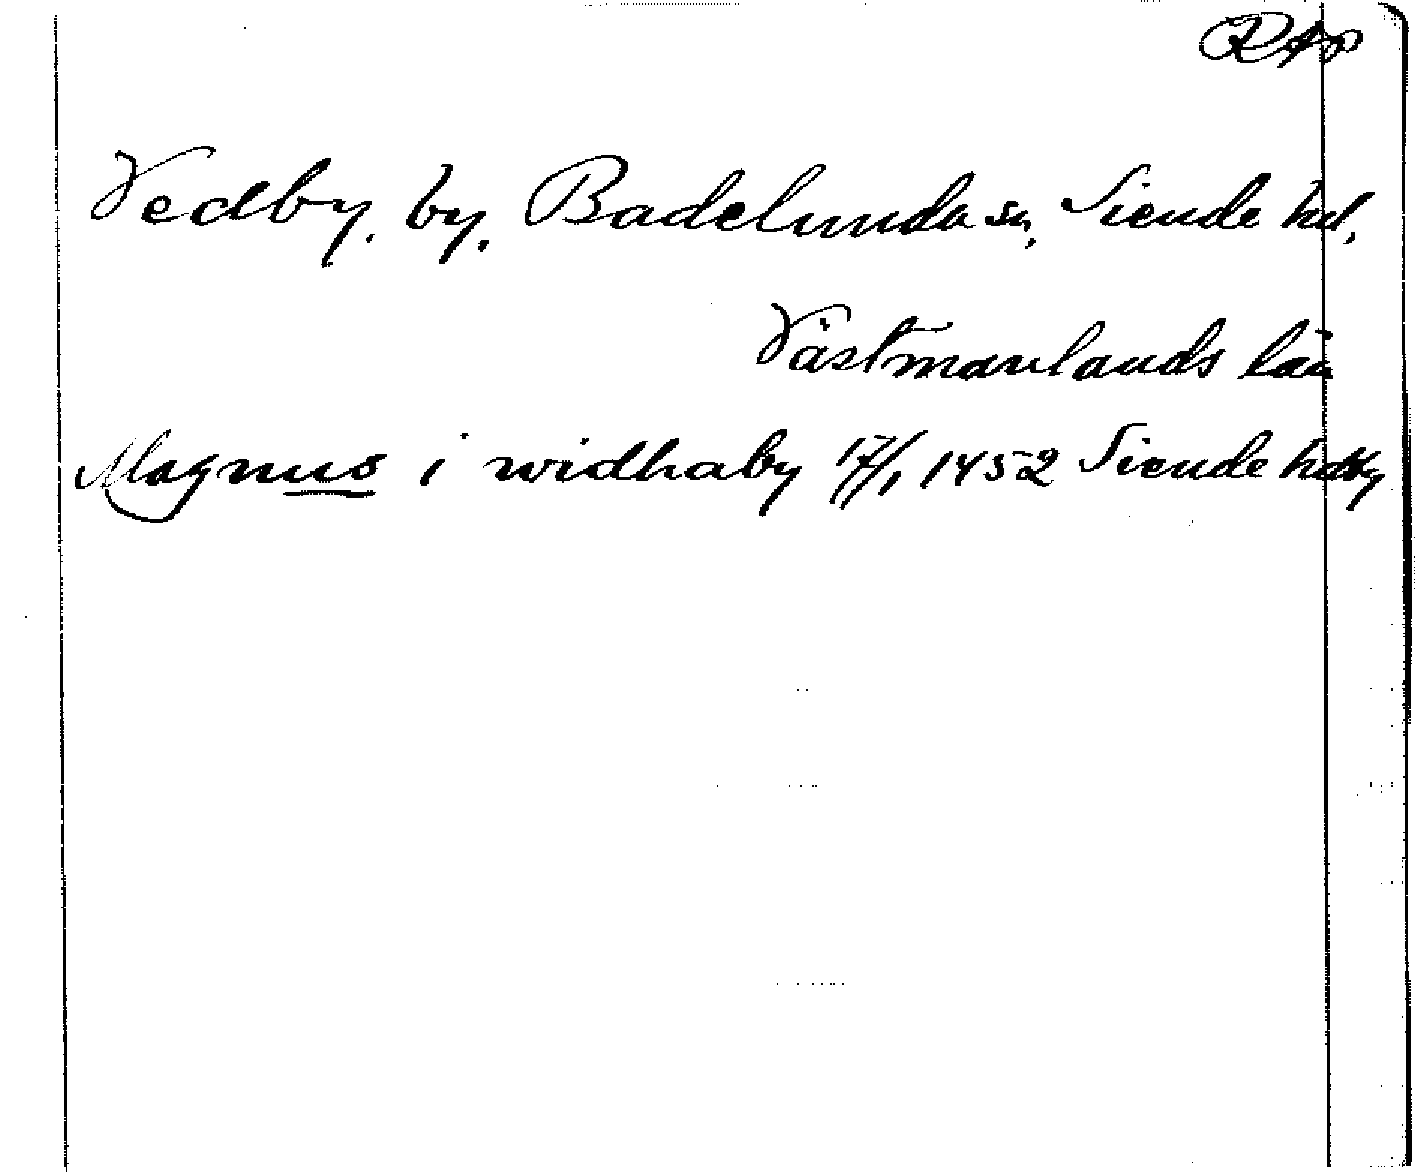 RAp
Vedby, by, Badelunda sn, Siende hd,
Västmanlands län
Magnus i widhaby 17/1 1452 Siende hd